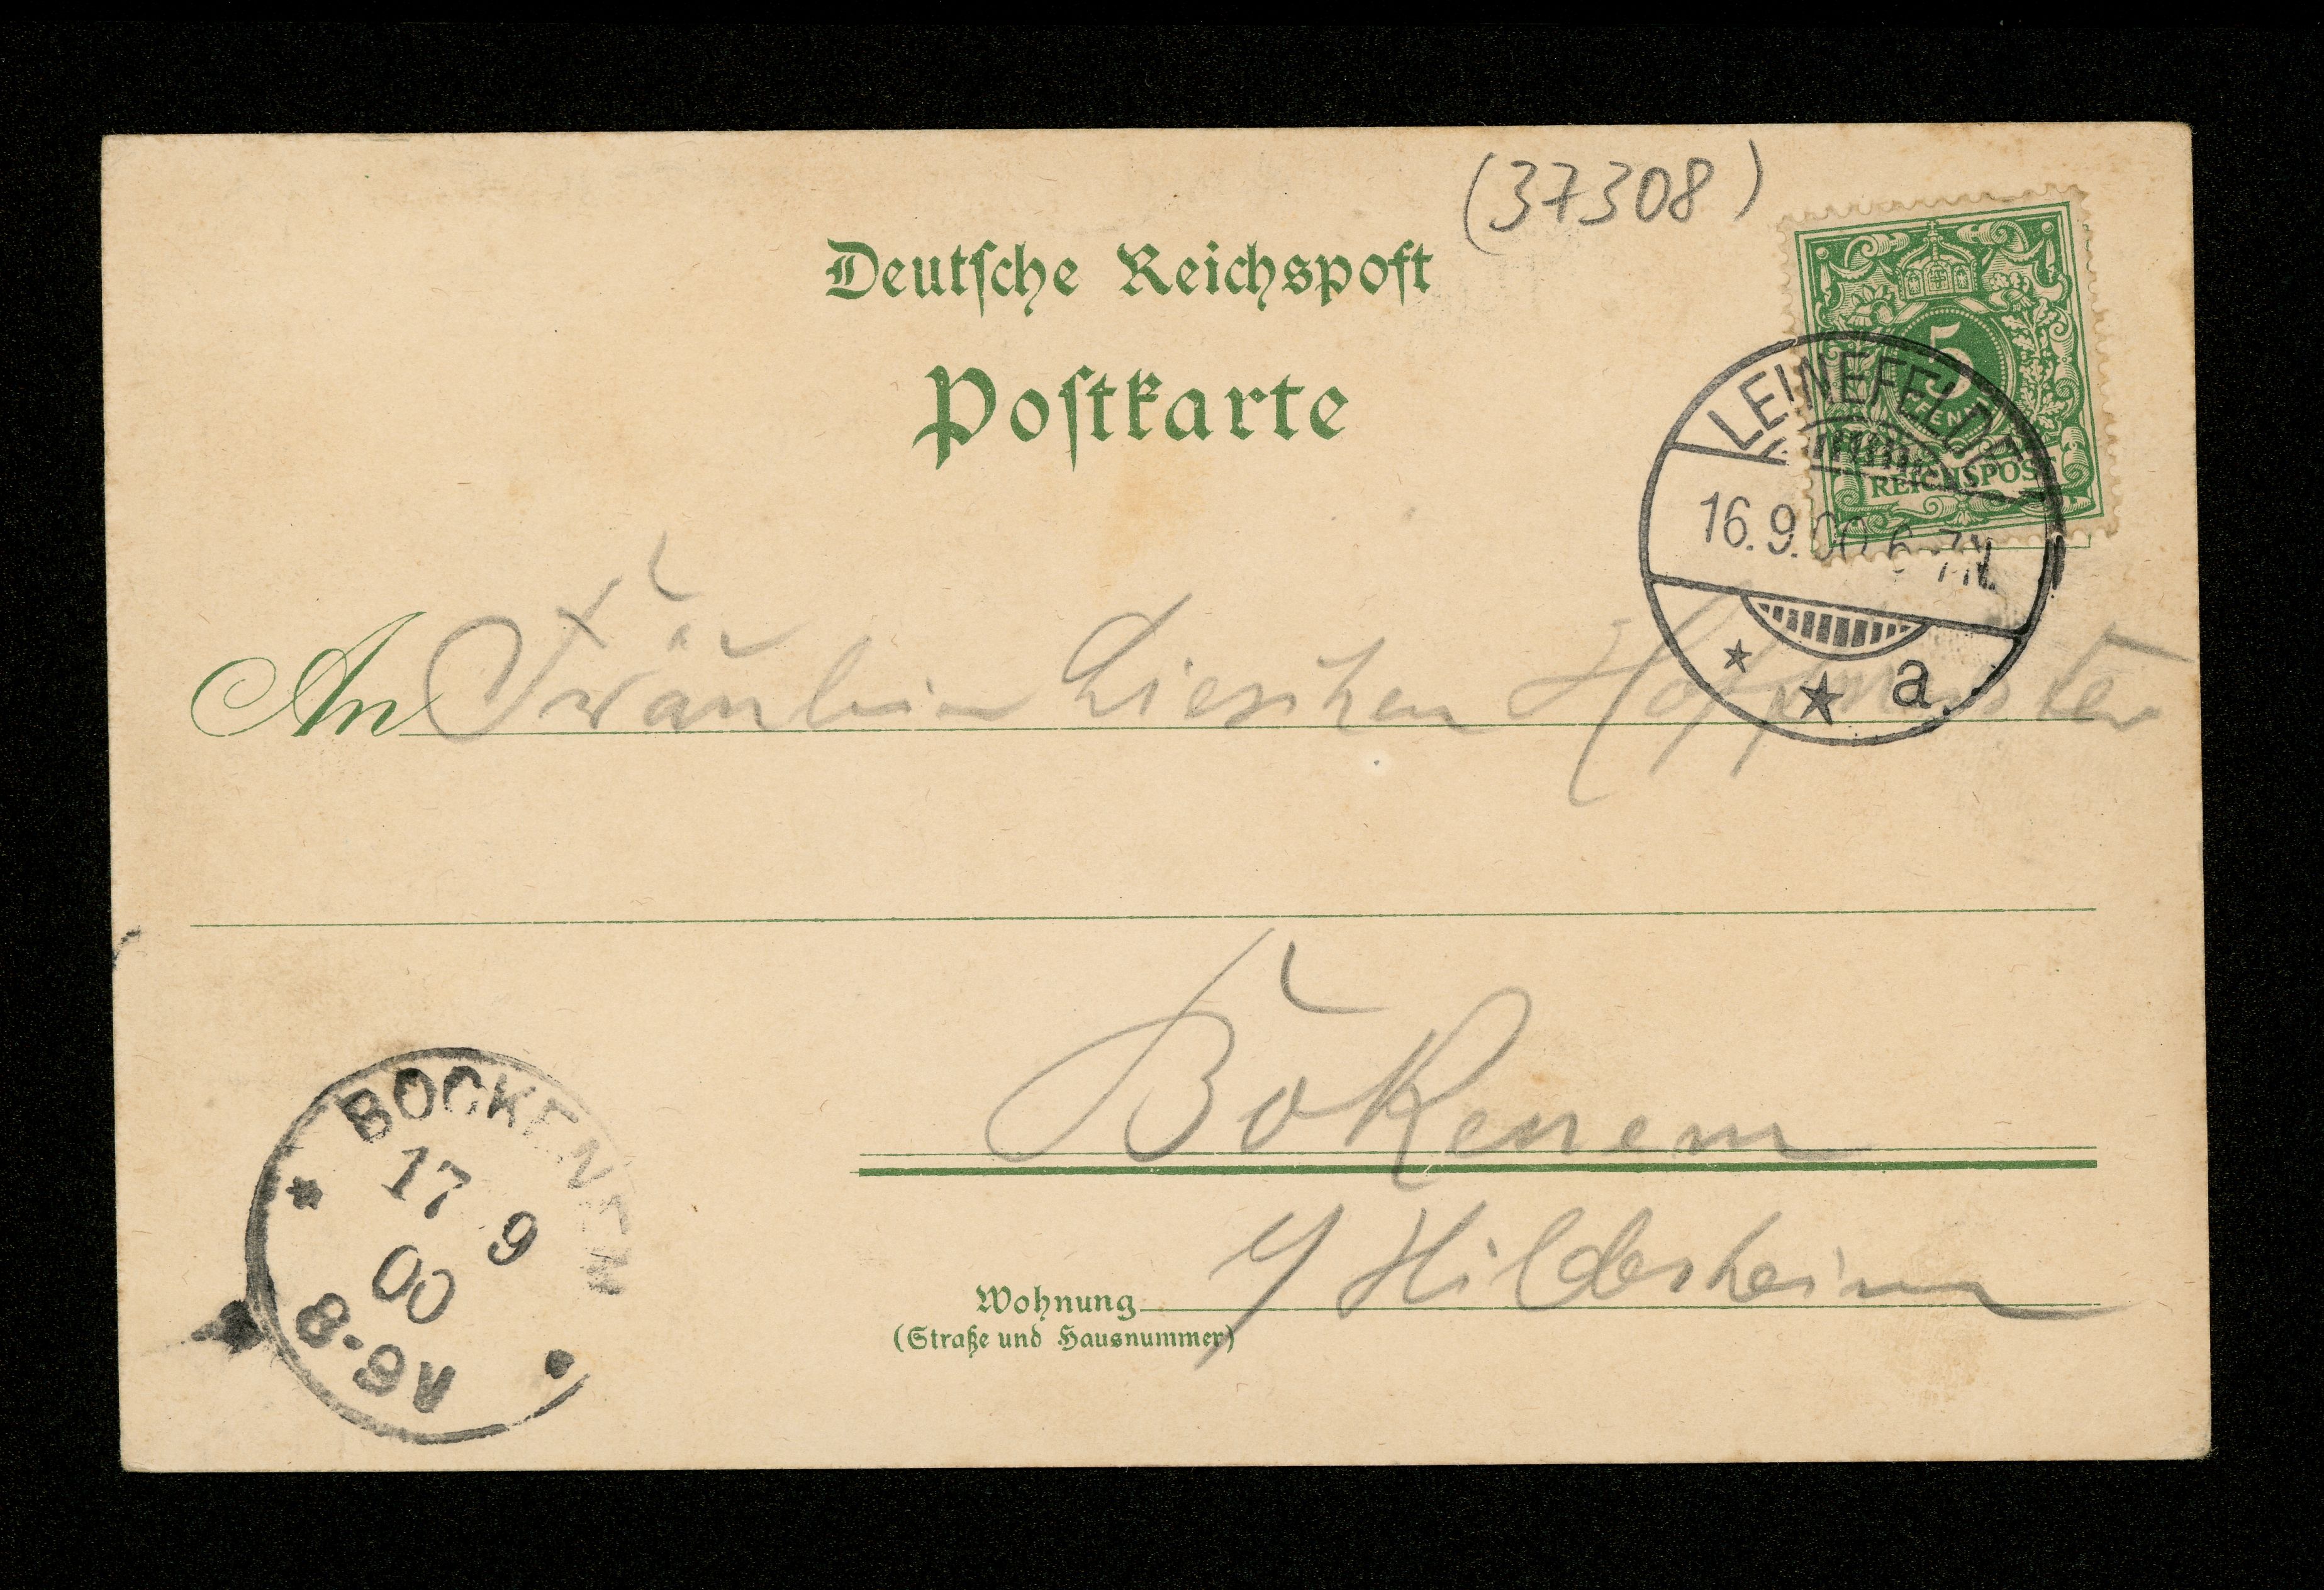 (37308)
Deutsche Reichspost
Postkarte
5
PFENNIG
REICHSPOST
LEINEFELDE
16.9.00 6-7N.
a.
An Fräulein Lieschen
Bökenem
Hildesheim
Wohnung
(Straße und Hausnummer)
BOCKENEM
17 9
00
8-9V